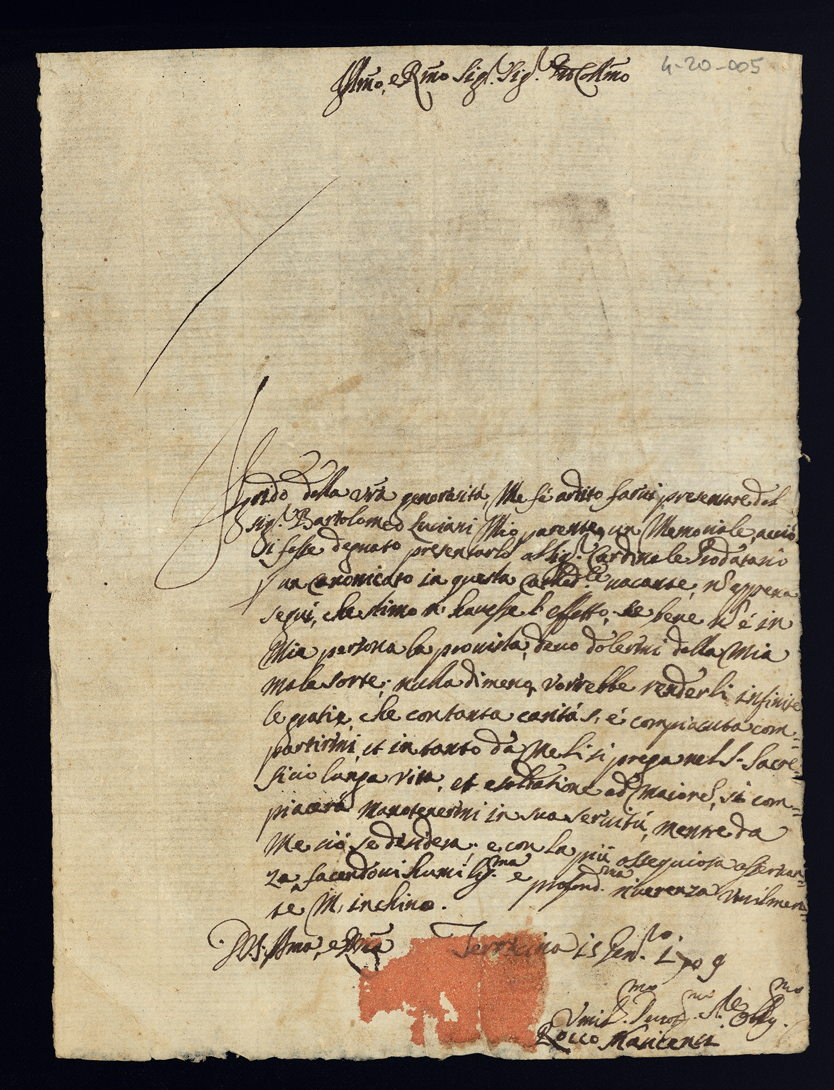 4-20-005
Ill.mo, e R.mo Sig.r Sig.r Pro Col.mo
della v.ra generosità, Me fè ardito farui presentare dal
Sig.r Bartolomeo Luciani Mio parente, un Memoriale, acciò
Si fosse degnato presentarlo al Sig.r Cardinale Prodatario
un canonicato in questa Catted.le vacante, nè appena
seguì, che stimo n' hauesse l' effetto, se bene n' è in
Mia persona la prouista, deuo dolermi della Mia
Mala sorte; nulla dimeno vorrebbe renderli infinite
le gratie, che con tanta carità s' è compiaciuta com=
partirmi, et in tanto dà Me li si prega nel S. Sacre=
ficio longa vita, et esaltatione ad Maiora, si com=
piacerà Manotenermi in sua seruitù, mentre da
Me ciò se desidera. e con la più ossequiosa osseruan=
za, facendoui humiliss.ma e profond.ma riuerenza
te M' inchino.
D.V.S. Ill.ma, e R.ma Terracina 15 1709
Vmil.mo Deuot.mo
Rocco